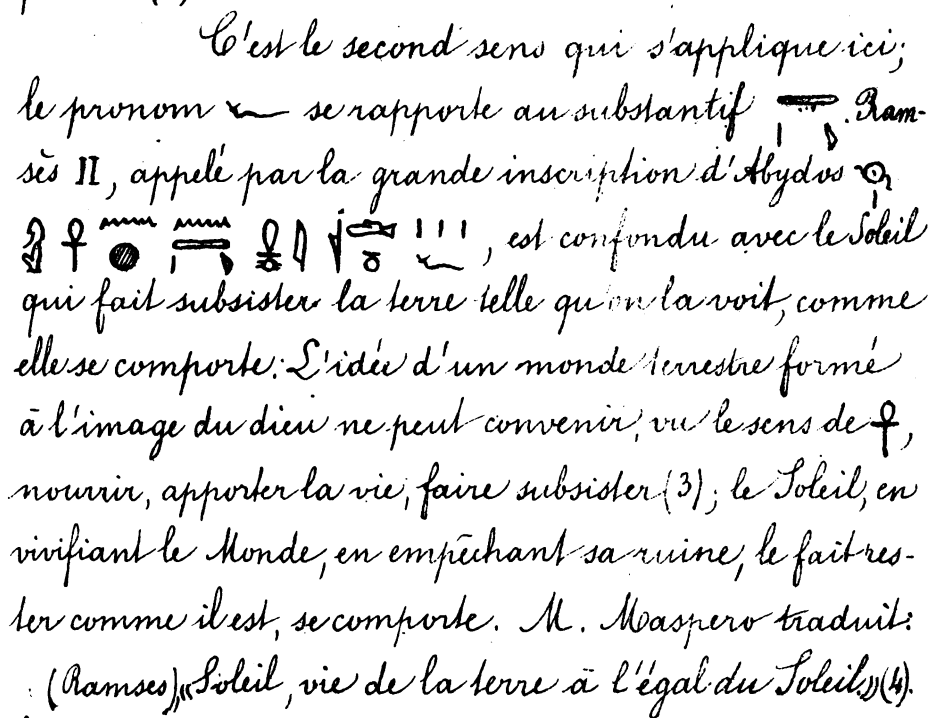 C'est le second sens qui s'applique ici;
le pronom se rapporte au substantif . Ram-
sès II, appelé par la grande inscription d'Abydos
, est confondu avec le Soleil
qui fait subsister la terre telle qu'on la voit, comme
elle se comporte. L'idée d'un monde terrestre formé
à l'image du dieu ne peut convenir, vu le sens de 𓋹,
nourrir, apporter la vie, faire subsister (3); le Soleil, en
vivifiant le Monde, en empêchant sa ruine, le fait res-
ter comme il est, se comporte. M. Maspero traduit:
(Ramses) «Soleil, vie de la terre à l'égal du Soleil» (4).